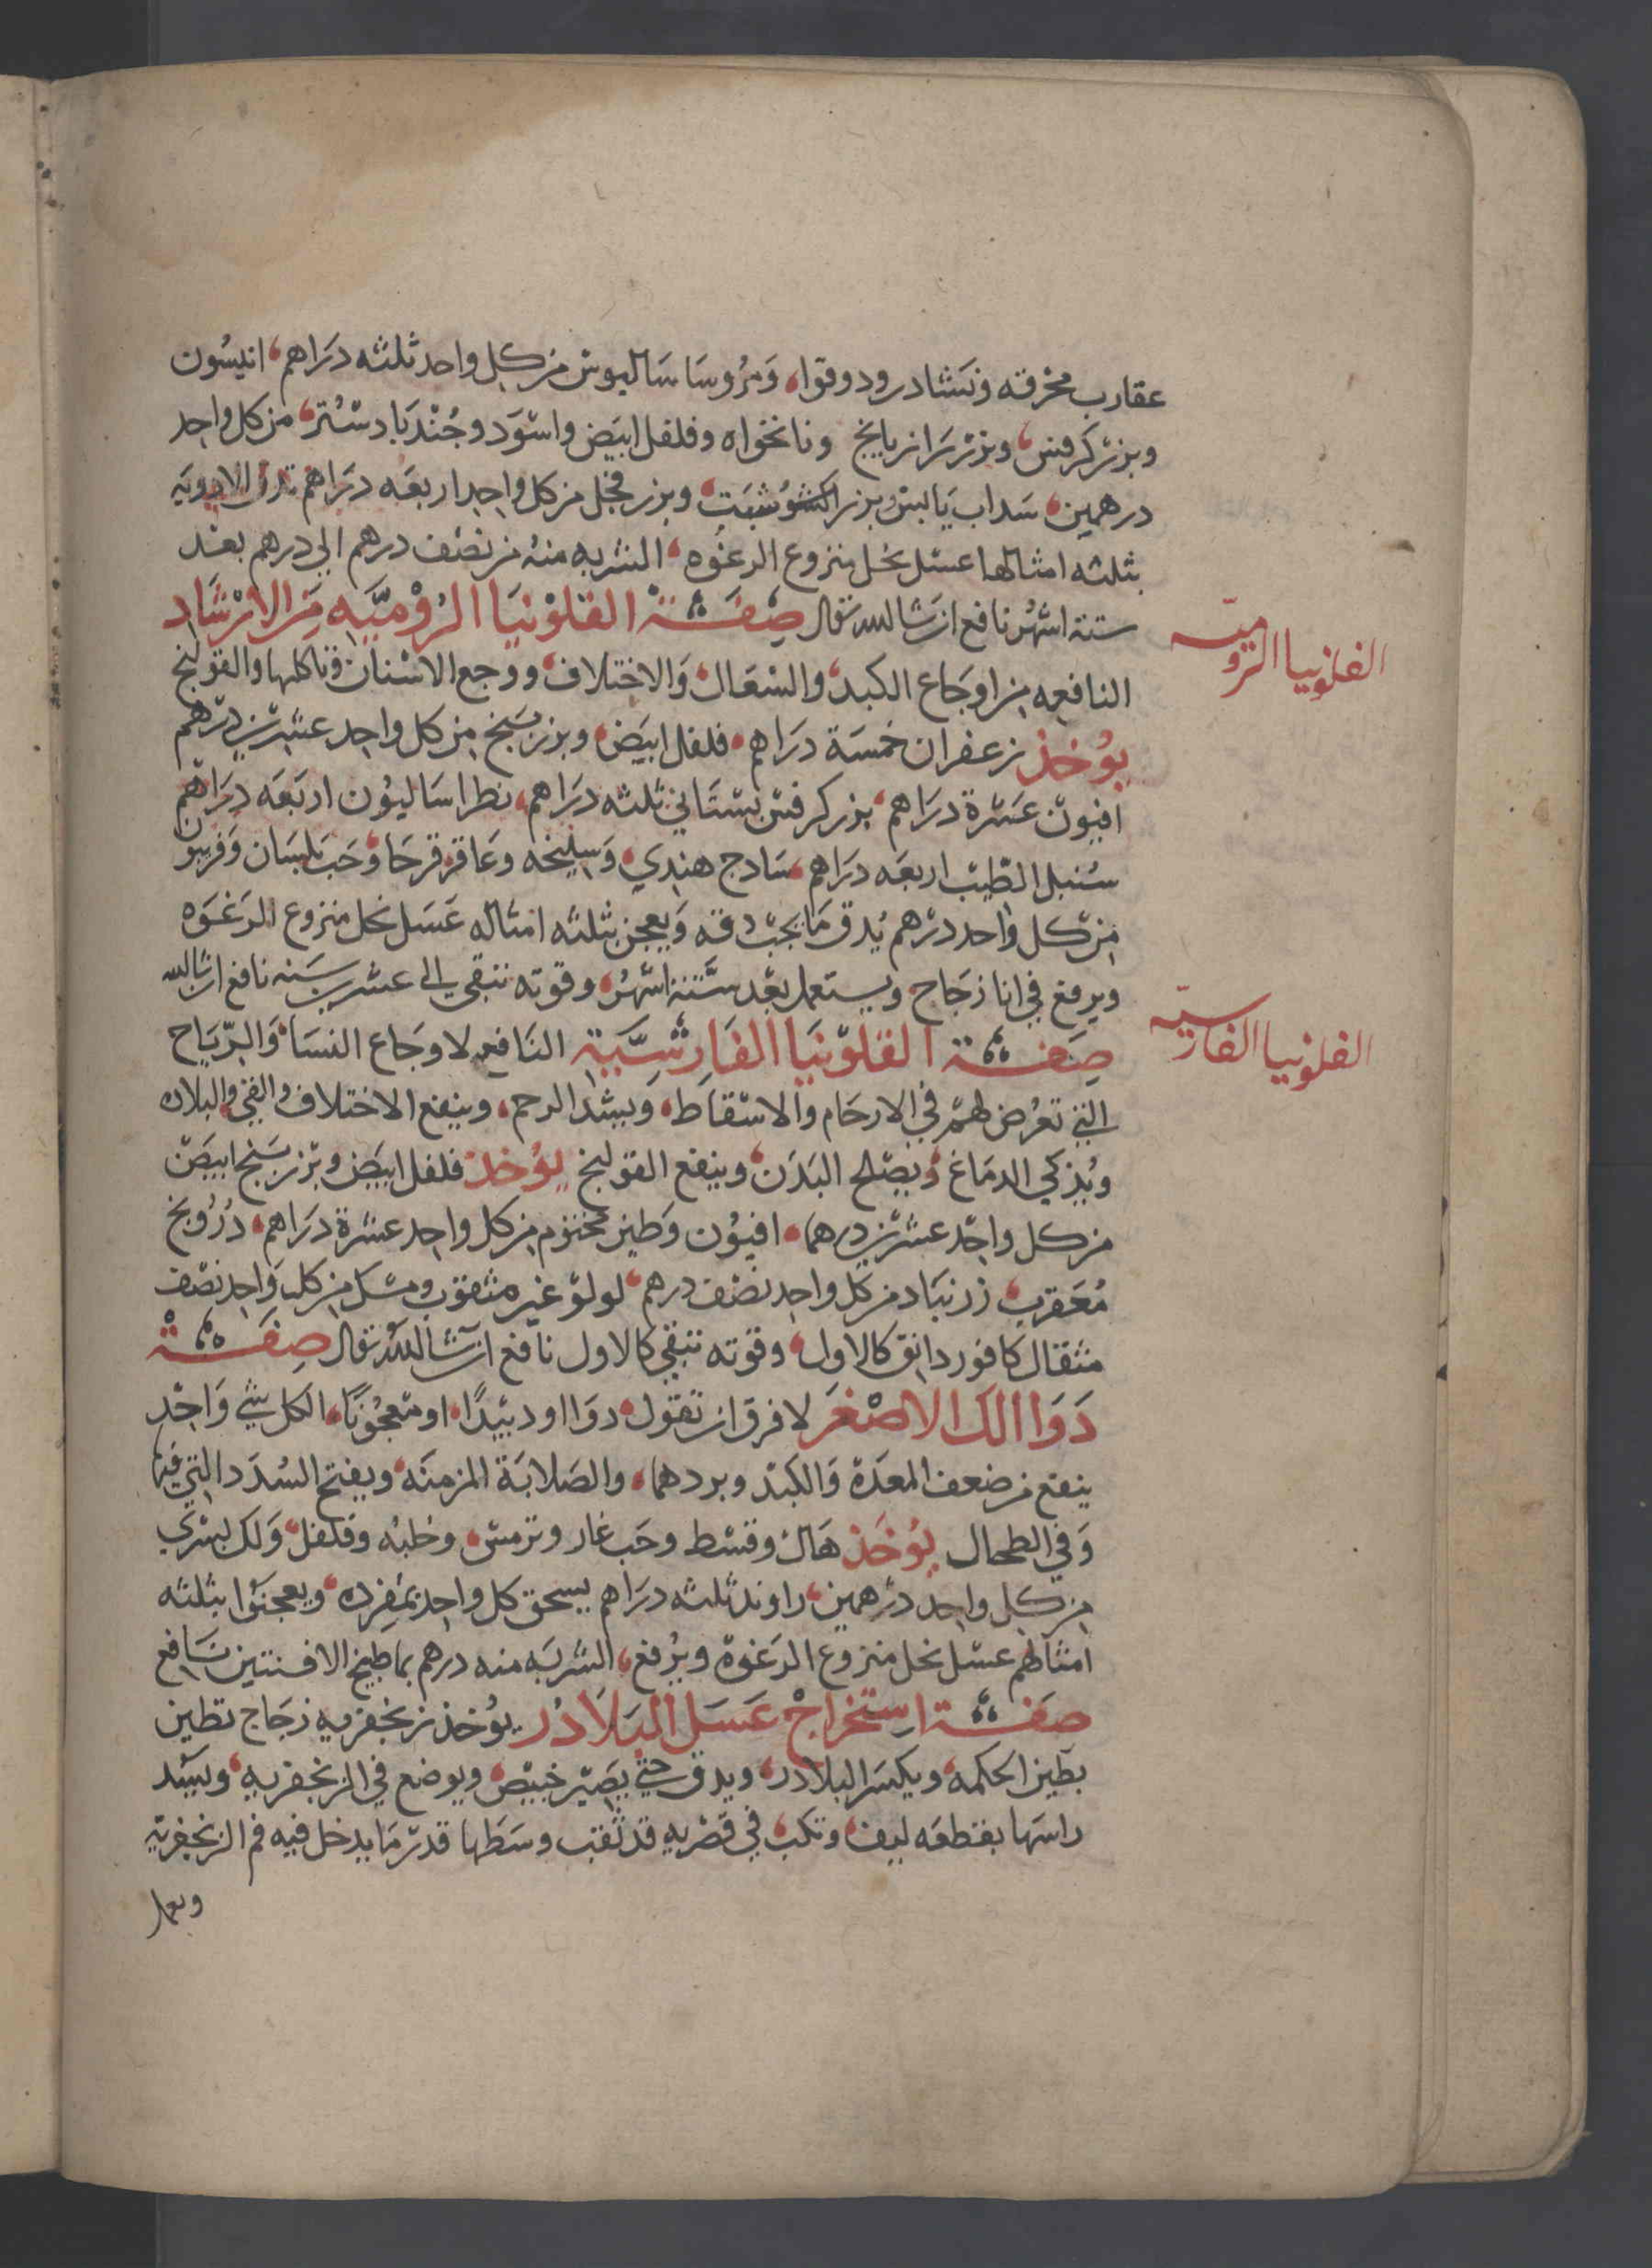 عقارب محرقه ونشادر ودوقوا، ومر وساساليوس من كل واحد ثلثه دراهم، انيسون
وبزر كرفس، وبزر رازيانج ونانخواه وفلفل ابيض واسود وجندبادستر، من كل واحد
درهمين، سداب يابس وبزر شبت، وبزر فجل من كل واحد اربعه دراهم تدق الادويه
بثلثه امثالها عسل نحل منزوع الرغوه، الشربه منه من نصف درهم الي درهم بعد
ستة اشهر نافع ان شا الله تعالى صفة القلونيا الروميه من الارشاد
الفلونيا الروميه
النافعه من اوجاع الكبد، والسعال، والاختلاف، ووجع الاسنان وتاكلها والقولنج
يوخذ زعفران خمسة دراهم، فلفل ابيض، وبزر بنج من كل واحد عشرين درهم
افيون عشرة دراهم، بزر كرفس بستاني ثلثه دراهم، نطراساليون اربعه دراهم
سنبل الطيب اربعه دراهم، سادج هندي، وسليخه وعاقر قرحا، وحب بلسان وفربيون
من كل واحد درهم يدق ما يجب دقه ويعجن بثلثه امثاله عسل نحل منزوع الرغوه
ويرفع في انا زجاج ويستعمل بعد ستة اشهر، وقوته تبقى الى عشر سنه نافع ان شا الله
صفة القلونيا الفارسية النافعه لاوجاع النسا، والرياح
الفلونيا الفارسيه
التي تعرض لهم في الارحام والاسقاط، ويشد الرحم، وينفع الاختلاف والقي والبلاده
ويذكي الدماغ، ويصلح البدن، وينفع القولنج يوخذ فلفل ابيض وبزر بنج ابيض
من كل واحد عشرين درهما، افيون وطين مختوم من كل واحد عشرة دراهم، درونج
معقرب، زرنباد من كل واحد نصف درهم، لولو غير مثقوب ومسك من كل واحد نصف
مثقال كافور دانق كالاول، وقوته تبقي كالاول نافع ان شا الله تعالى صفة
دوا الك الاصغر لا فرق ان تقول، دوا او دبيدا، او معجونا، الكل شي واحد
ينفع من ضعف المعدة والكبد وبردهما، والصلابة المزمنه، ويفتح السدد التي فيها
وفي الطحال يوخذ هال وقسط وحب غار وترمس، وحلبه وفلفل، ولك بسري
من كل واحد درهمين، راوند ثلثه دراهم يسحق كل واحد بمفرده، ويعجنوا بثلثه
امثالهم عسل نحل منزوع الرغوة ويرفع، الشربه منه درهم بما طبيخ الافسنتين نافع
صفة استخراج عسل البلادر يوخذ زنجفريه زجاج تطين
بطين الحكمه، ويكسر البلادر، ويدق حتي يصير خبيص، ويوضع في الزنجفريه، ويسد
راسها بقطعه ليف، وتكب، في قصريه قد ثقب وسطها قدر ما يدخل فيه فم الزنجفرية
ويعمل